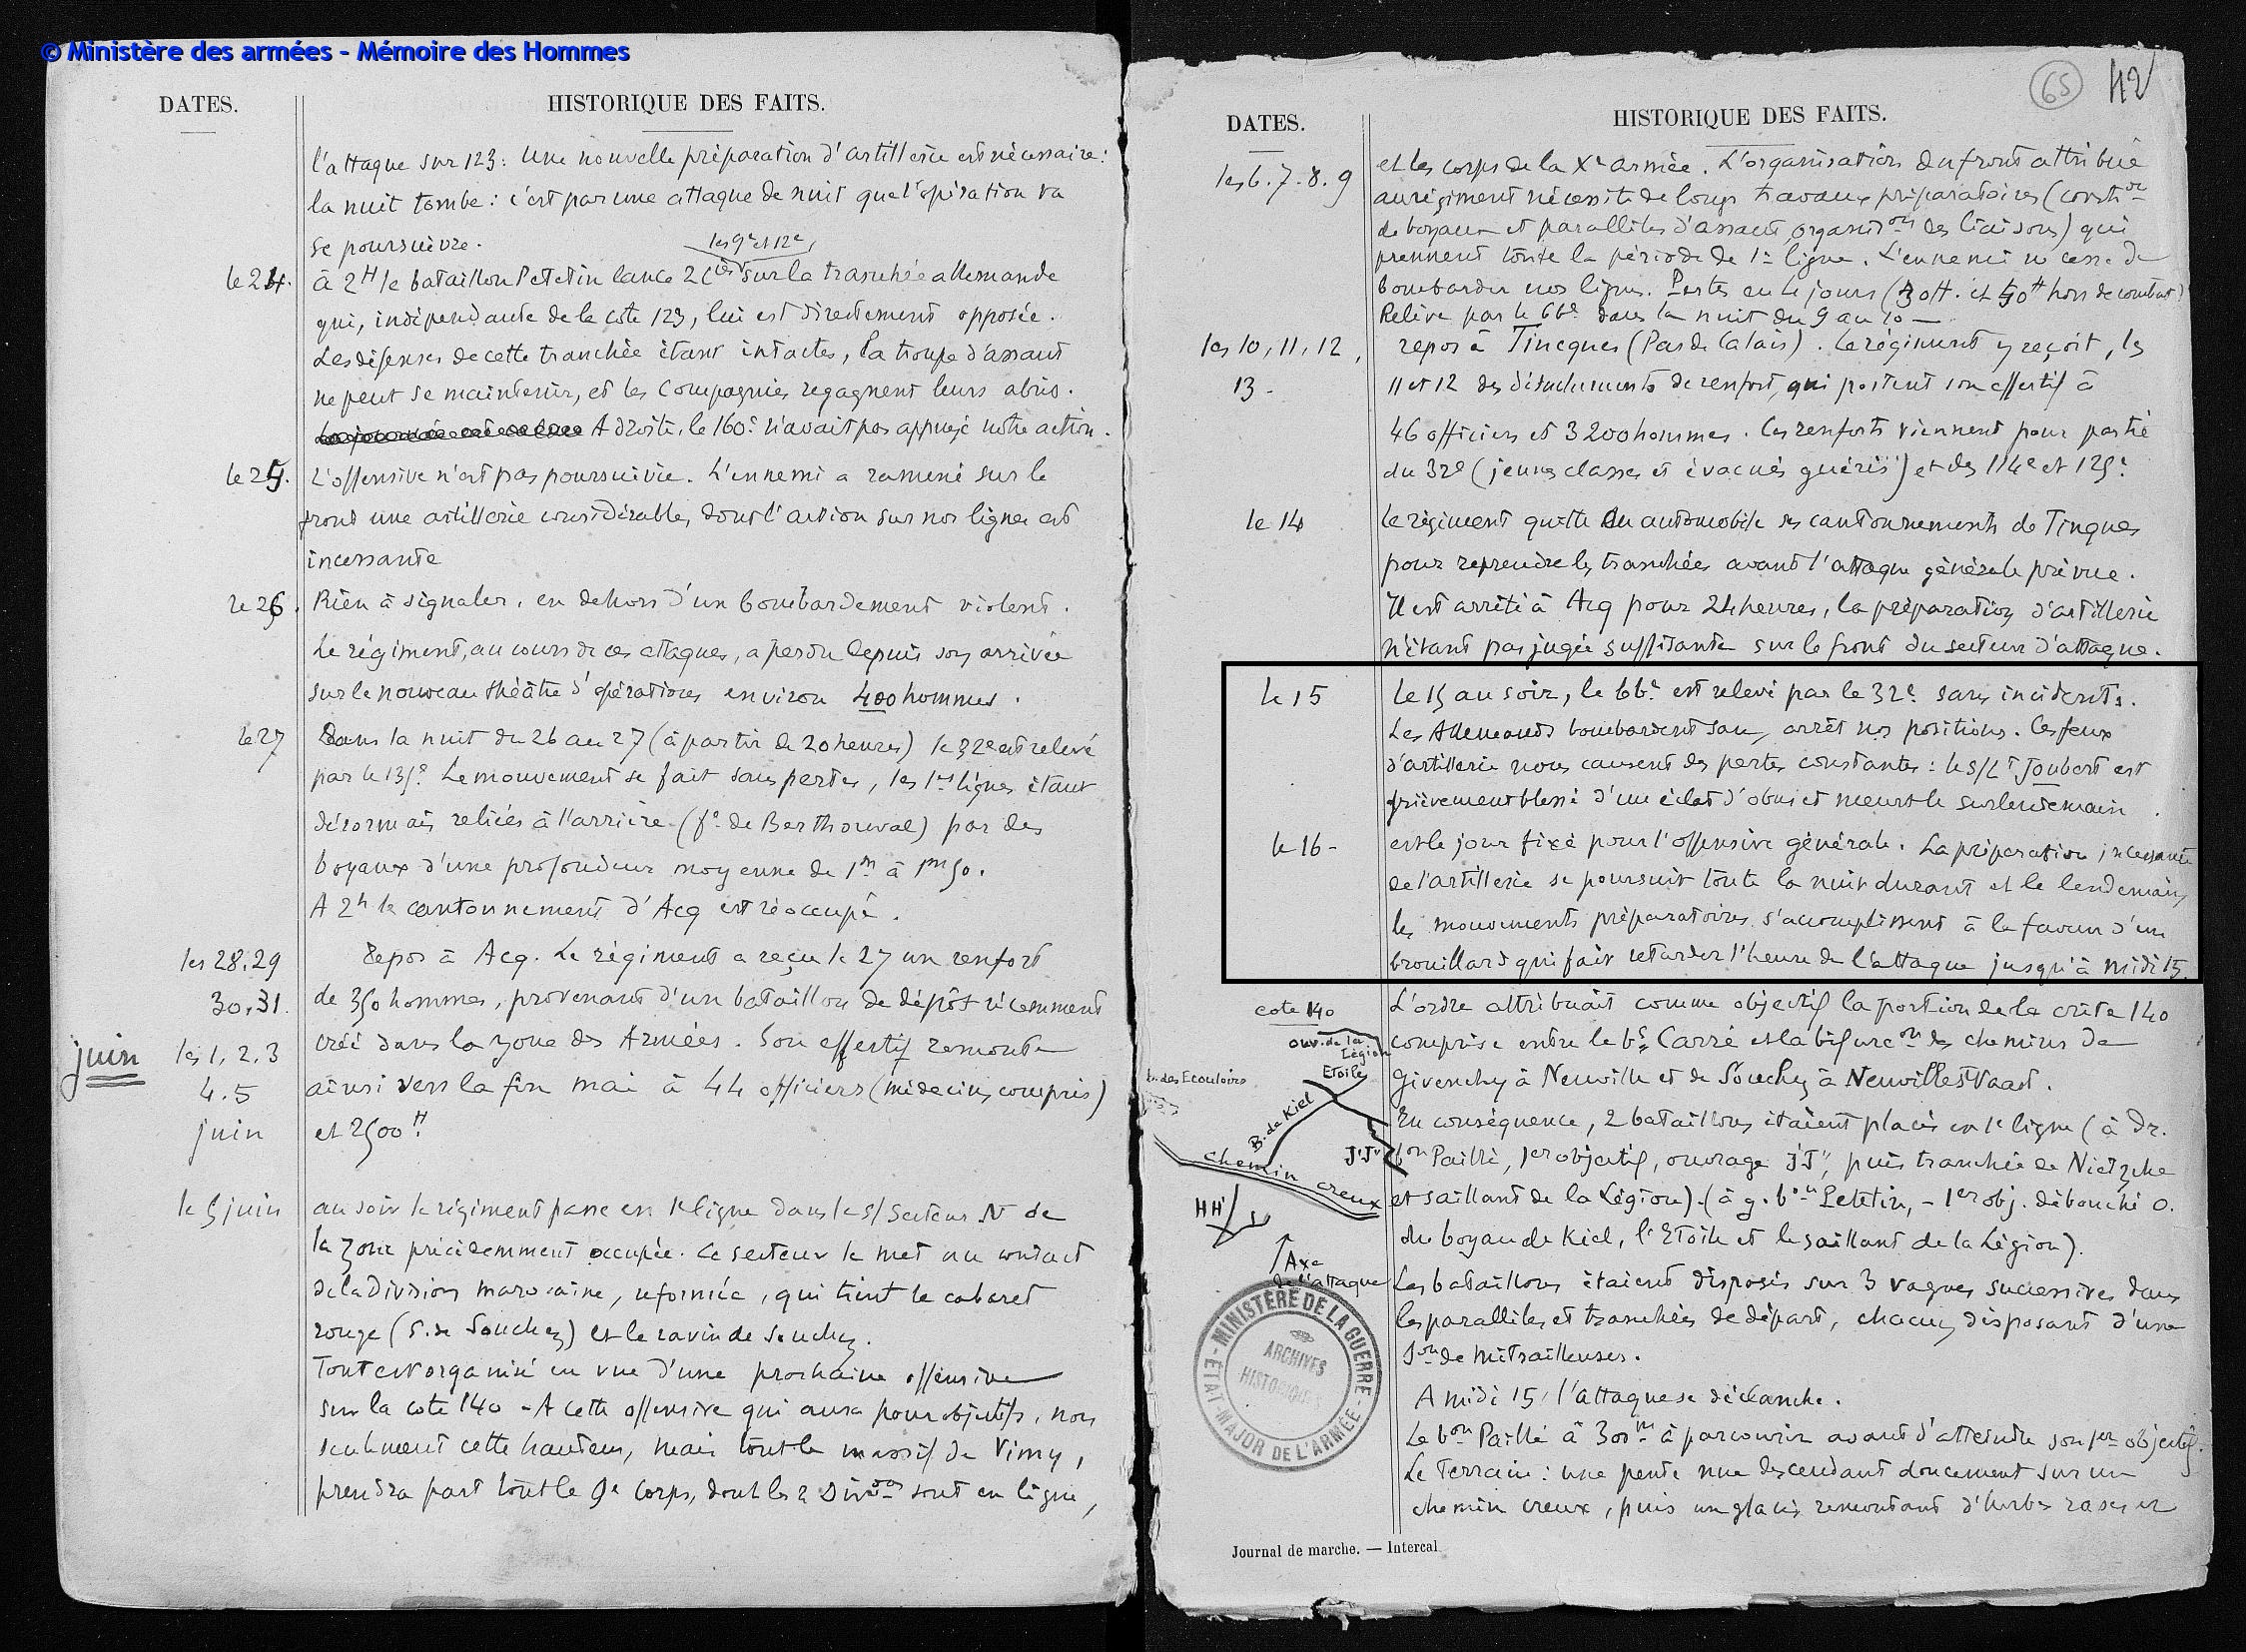 © Ministère des armées - Mémoire des Hommes
DATES.
HISTORIQUE DES FAITS.
l'attaque sur 123. Une nouvelle préparation d'artillerie est nécessaire:
la nuit tombe: c'est par une attaque de nuit que l'opération va
se poursuivre.
les 9e et 12e
le 24. à 2H le bataillon Petetin lance 2 Cies sur la tranchée allemande
qui, indépendante de la cote 123, lui est directement opposée.
Les défenses de cette tranchée étant intactes, la troupe d'assaut
ne peut se maintenir, et les Compagnies regagnent leurs abris.
A droite, le 160e n'avait pas appuyé notre action.
le 25. L'offensive n'est pas poursuivie. L'ennemi a ramené sur le
front une artillerie considérable, dont l'action sur nos lignes est
incessante
le 26. Rien à signaler, en dehors d'un bombardement violent.
Le régiment, au cours de ces attaques, a perdu depuis son arrivée
sur le nouveau théâtre d'opérations environ 400 hommes.
le 27 Dans la nuit du 26 au 27 (à partir de 20 heures) le 32e est relevé
par le 135e. Le mouvement se fait sans pertes, les 1es lignes étant
désormais reliées à l'arrière (fe de Berthonval) par des
boyaux d'une profondeur moyenne de 1m à 1m50.
A 2h le cantonnement d'Acq est réoccupé.
les 28.29 Repos à Acq. Le régiment a reçu le 27 un renfort
30.31. de 350 hommes, provenant d'un bataillon de dépôt récemment
juin les 1, 2, 3 créé dans la zone des Armées. Son effectif remonte
4.5 ainsi vers la fin mai à 44 officiers (médecins compris)
juin et 2500H.
le 5 juin au soir le régiment passe en 1e ligne dans le s/secteur N de
la zone précédemment occupée. Ce secteur le met au contact
de la Division marocaine, reformée, qui tient le cabaret
rouge (S. de Souchez) et le ravin de Souchez.
Tout est organisé en vue d'une prochaine offensive
sur la cote 140 - A cette offensive qui aura pour objectifs, non
seulement cette hauteur, mais tout le massif de Vimy,
prendra part tout le 9e Corps, dont les 2 Divons sont en ligne,
65 42
DATES.
HISTORIQUE DES FAITS.
les 6.7.8.9 et les corps de la Xe armée. L'organisation du front attribué
au régiment nécessite de longs travaux préparatoires (constron
de boyaux et parallèles d'assaut, organisons des liaisons) qui
prennent toute la période de 1e ligne. L'ennemi ne cesse de
bombarder nos lignes. Pertes en 4 jours (3 off. et 50H hors de combat)
Relève par le 66e dans la nuit du 9 au 10 —
les 10, 11, 12, repos à Tincques (Pas de Calais). Le régiment y reçoit, les
13 - 11 et 12 des détachements de renfort, qui portent son effectif à
46 officiers et 3200 hommes. Ces renforts viennent pour partie
du 32e (jeunes classes et évacués guéris) et des 114e et 125e.
le 14 Le régiment quitte en automobile ses cantonnements de Tinques
pour reprendre les tranchées avant l'attaque générale prévue.
Il est arrêté à Acq pour 24 heures, la préparation d'artillerie
n'étant pas jugée suffisante sur le front du secteur d'attaque.
le 15 Le 15 au soir, le 66e est relevé par le 32e sans incidents.
Les Allemands bombardent sans arrêt nos positions. Ces feux
d'artillerie nous causent des pertes constantes: le S/Lt Joubert est
grièvement blessé d'un éclat d'obus et meurt le surlendemain.
le 16 - est le jour fixé pour l'offensive générale. La préparation incessante
de l'artillerie se poursuit toute la nuit durant et le lendemain,
les mouvements préparatoires s'accomplissent à la faveur d'un
brouillard qui fait retarder l'heure de l'attaque jusqu'à midi 15.
L'ordre attribuait comme objectif la portion de la crête 140
comprise entre le bs Carré et la bifurcon des chemins de
Givenchy à Neuville et de Souchez à Neuville St Vaast.
En conséquence, 2 bataillons étaient placés en 1e ligne (à dr.
bon Paillé, 1er objectif, ouvrage J'J'', puis tranchée de Nietzche
et saillant de la Légion). (à g. bon Petetin, - 1er obj. débouché O.
du boyau de Kiel, l'Etoile et le saillant de la Légion).
Les bataillons étaient disposés sur 3 vagues successives dans
les parallèles et tranchées de départ, chacun disposant d'une
Son de mitrailleuses.
A midi 15, l'attaque se déclanche.
Le bon Paillé à 300m à parcourir avant d'atteindre son 1er objectif.
Le Terrain: une pente nue descendant doucement sur un
chemin creux, puis un glacis remontant d'herbes rases et
cote 140
ouv. de la Légion
Etoile
b. des Ecouloirs
B. de Kiel
J'J''
chemin creux
HH'
Axe
de l'attaque
MINISTÈRE DE LA GUERRE
ÉTAT-MAJOR DE L'ARMÉE
ARCHIVES
HISTORIQUES
Journal de marche. — Intercal